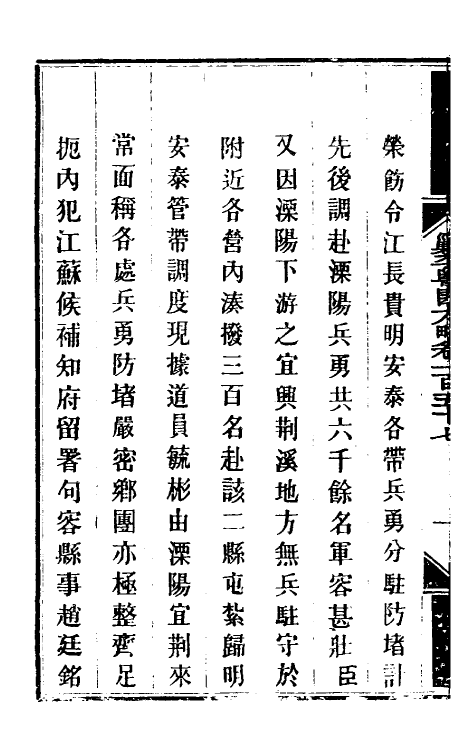 榮飭令江長貴明安泰各帶兵勇分駐防堵計
先後調赴溧陽兵勇共六千餘名軍容甚壯臣
又因溧陽下游之宜興荆溪地方無兵駐守於
附近各營內湊撥三百名赴該二縣屯紮歸明
安泰管帶調度現據道員毓彬由溧陽宜荆來
常面稱各處兵勇防堵嚴密鄉團亦極整齊足
扼內犯江蘇侯補知府留署句容縣事趙廷銘